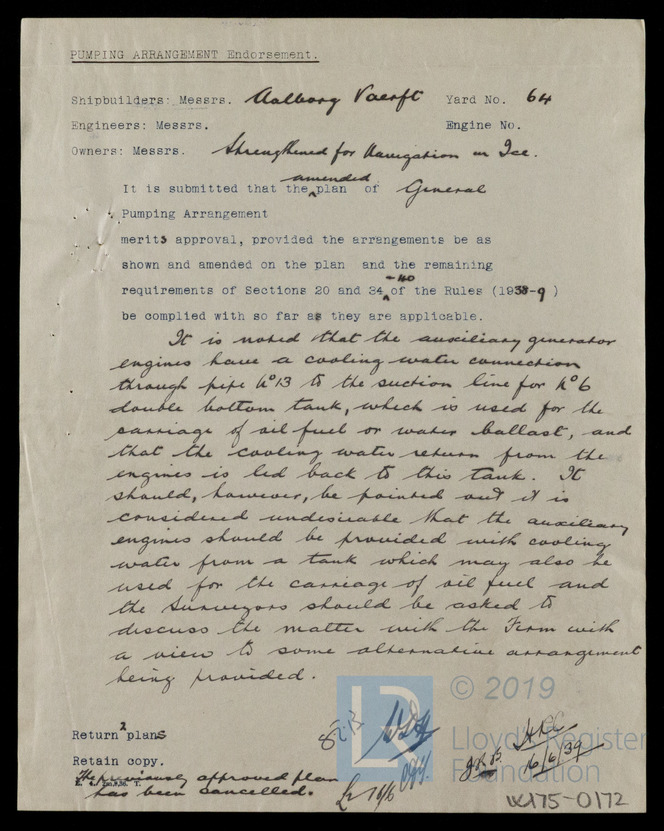 PUMPING ARRANGEMENT Endorsement.
Shipbuilders: Messrs. Aalborg Vaerft Yard No. 64
Engineers: Messrs. Engine No.
Owners: Messrs. Strengthened for Navigation in Ice.
amended
It is submitted that the plan of General
Pumping Arrangement
merits approval, provided the arrangements be as
shown and amended on the plan and the remaining
-40
requirements of Sections 20 and 34 of the Rules (1938-9)
be complied with so far as they are applicable.
It is noted that the auxiliary generator
engines have a cooling water connection
through pipe No 13 to the suction line for No 6
double bottom tank, which is used for the
carriage of oil fuel or water ballast, and
that the cooling water return from the
engines is led back to this tank. It
should, however, be pointed out it is
considered undesirable that the auxiliary
engines should be provided with cooling
water from a tank which may also be
used for the carriage of oil fuel and
the Surveyors should be asked to
discuss the matter with the Firm with
a view to some alternative arrangement
being provided.
© 2019
Lloyd's Register
Foundation
Return 2 plans
Retain copy.
The previously approved plan
has been cancelled.
16/6
16/6/39
W175-0172